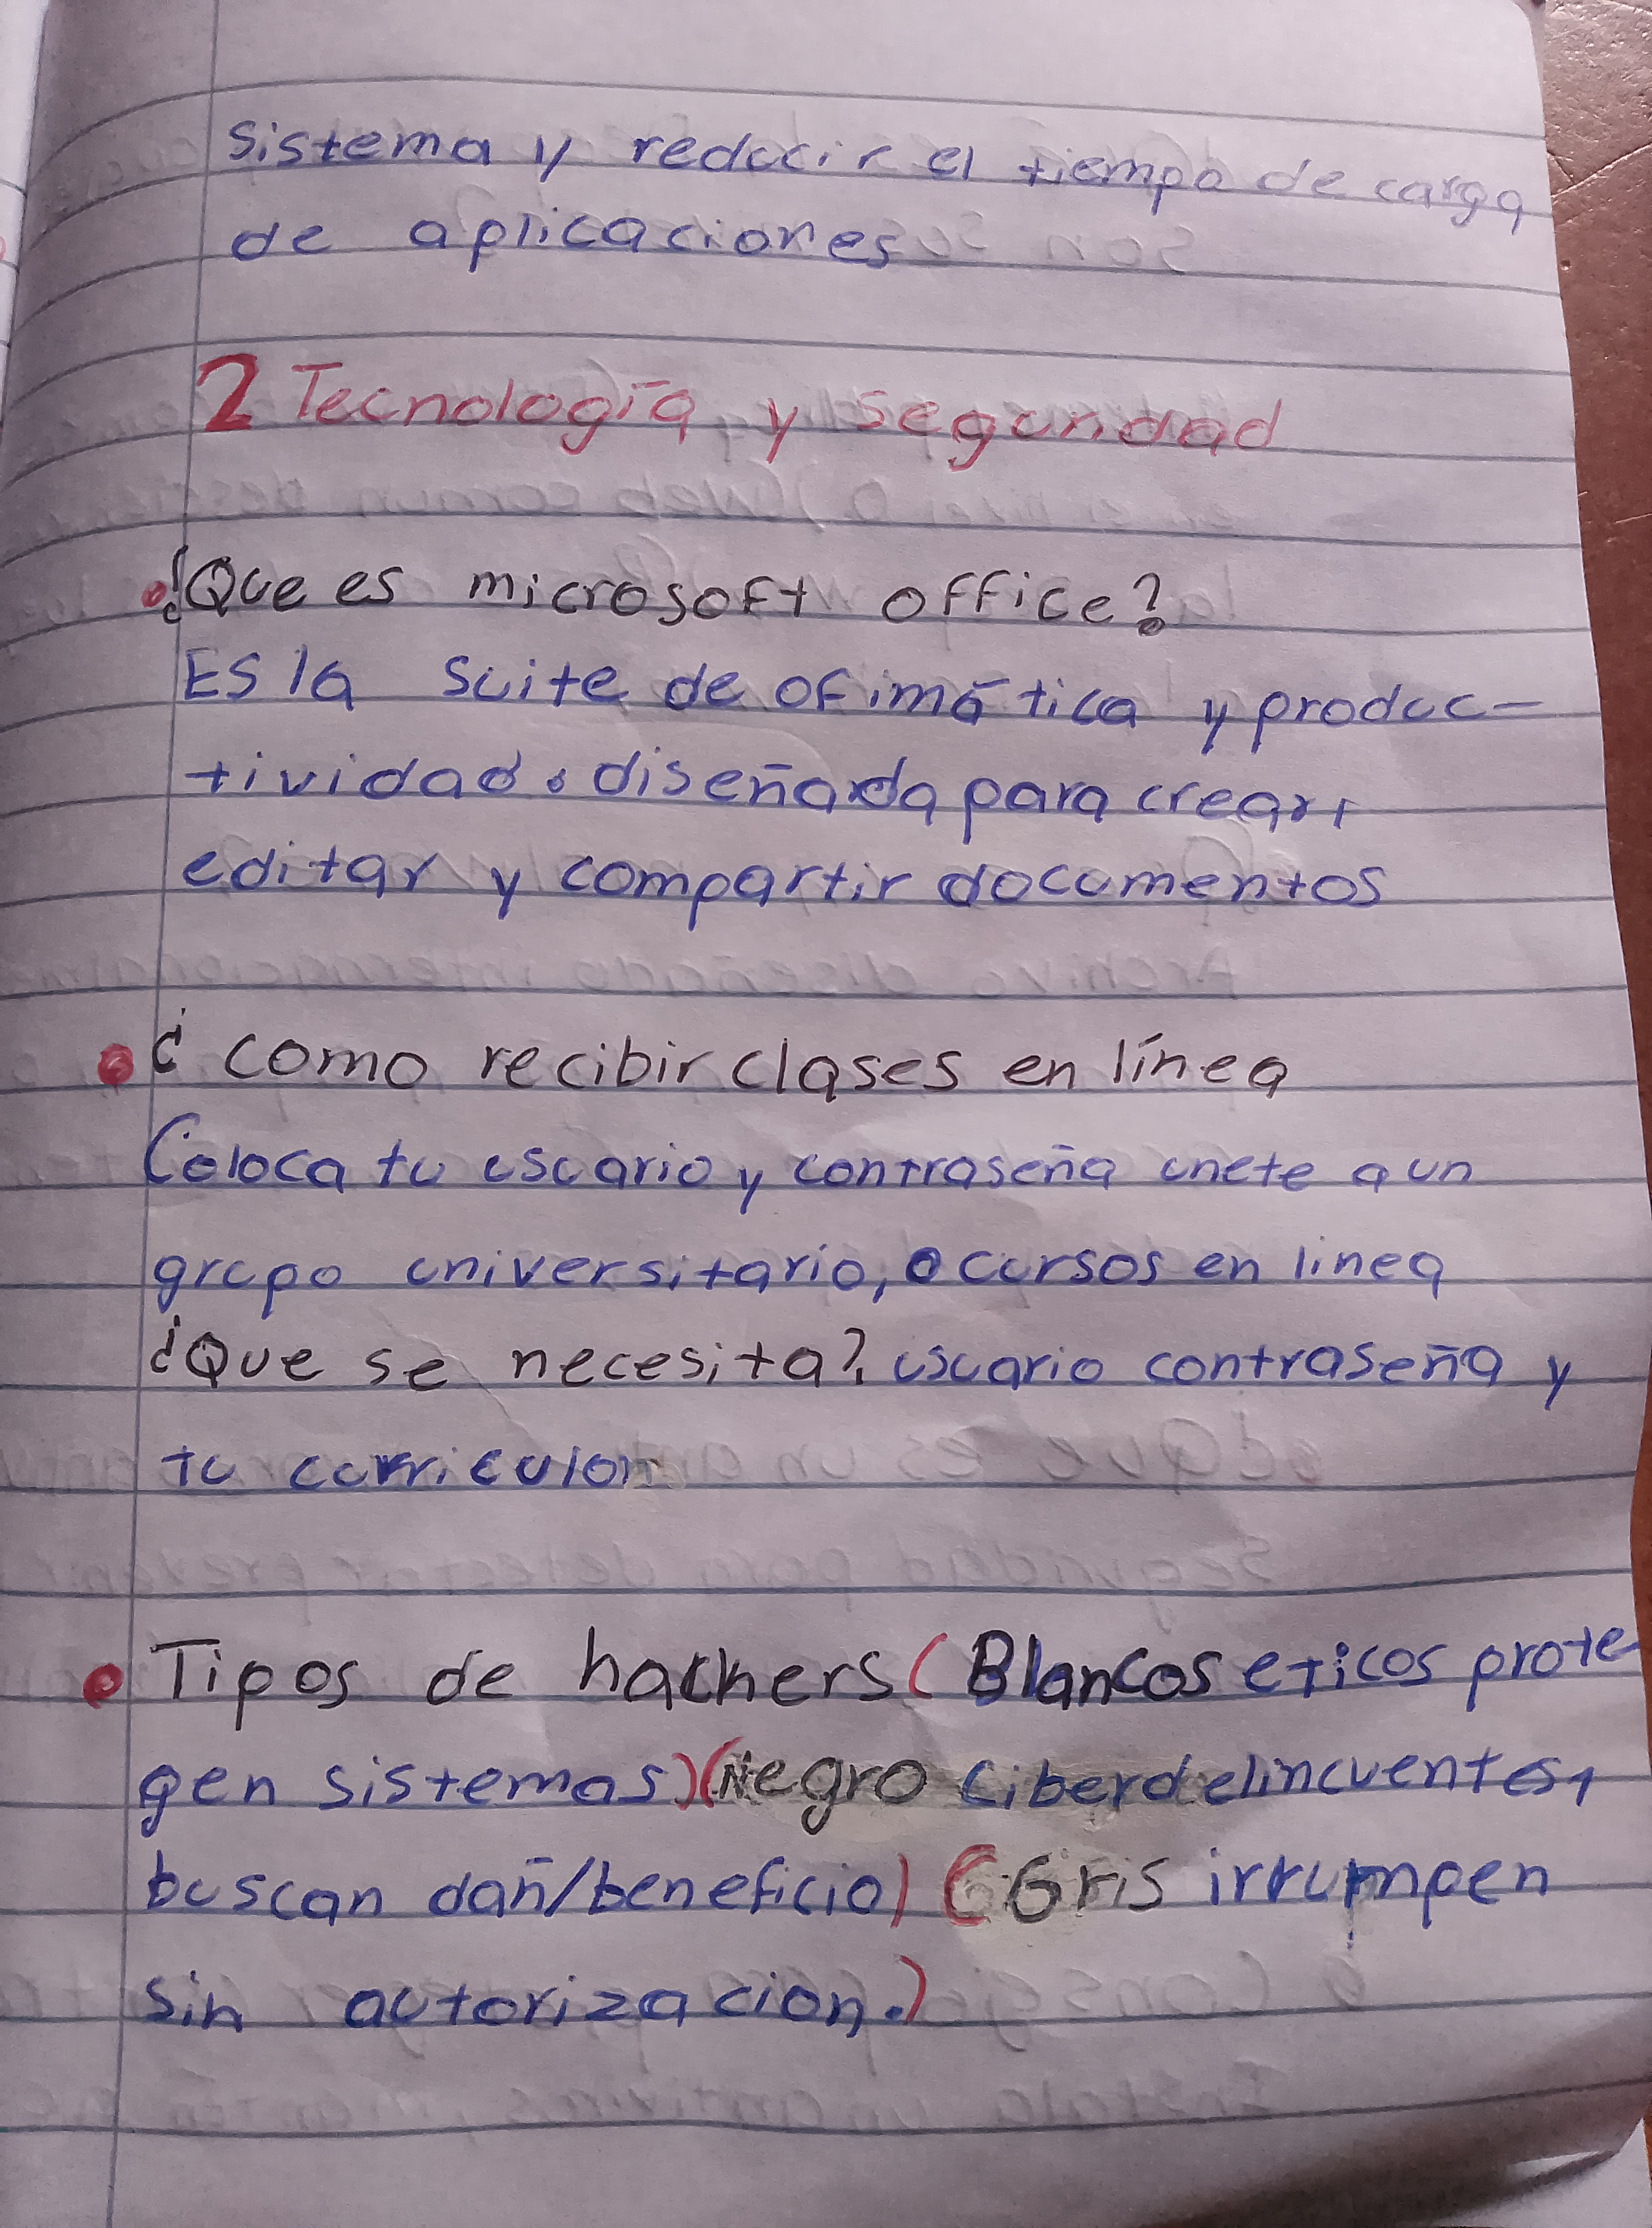 sistema y reducir el tiempo de carga
de aplicaciones
2 Tecnología y seguridad
¿Que es microsoft office?
Es la suite de ofimática y produc-
tividad. diseñada para crear,
editar y compartir documentos
¿ como recibir clases en línea
Coloca tu usuario y contraseña unete a un
grupo universitario, o cursos en linea
¿Que se necesita?. usuario contraseña y
tu curriculon
Tipos de hackers (Blancos eticos prote
gen sistemas) (Negro ciberdelincuentes,
buscan dañ/beneficio) (Gris irrumpen
sin autorizacion.)